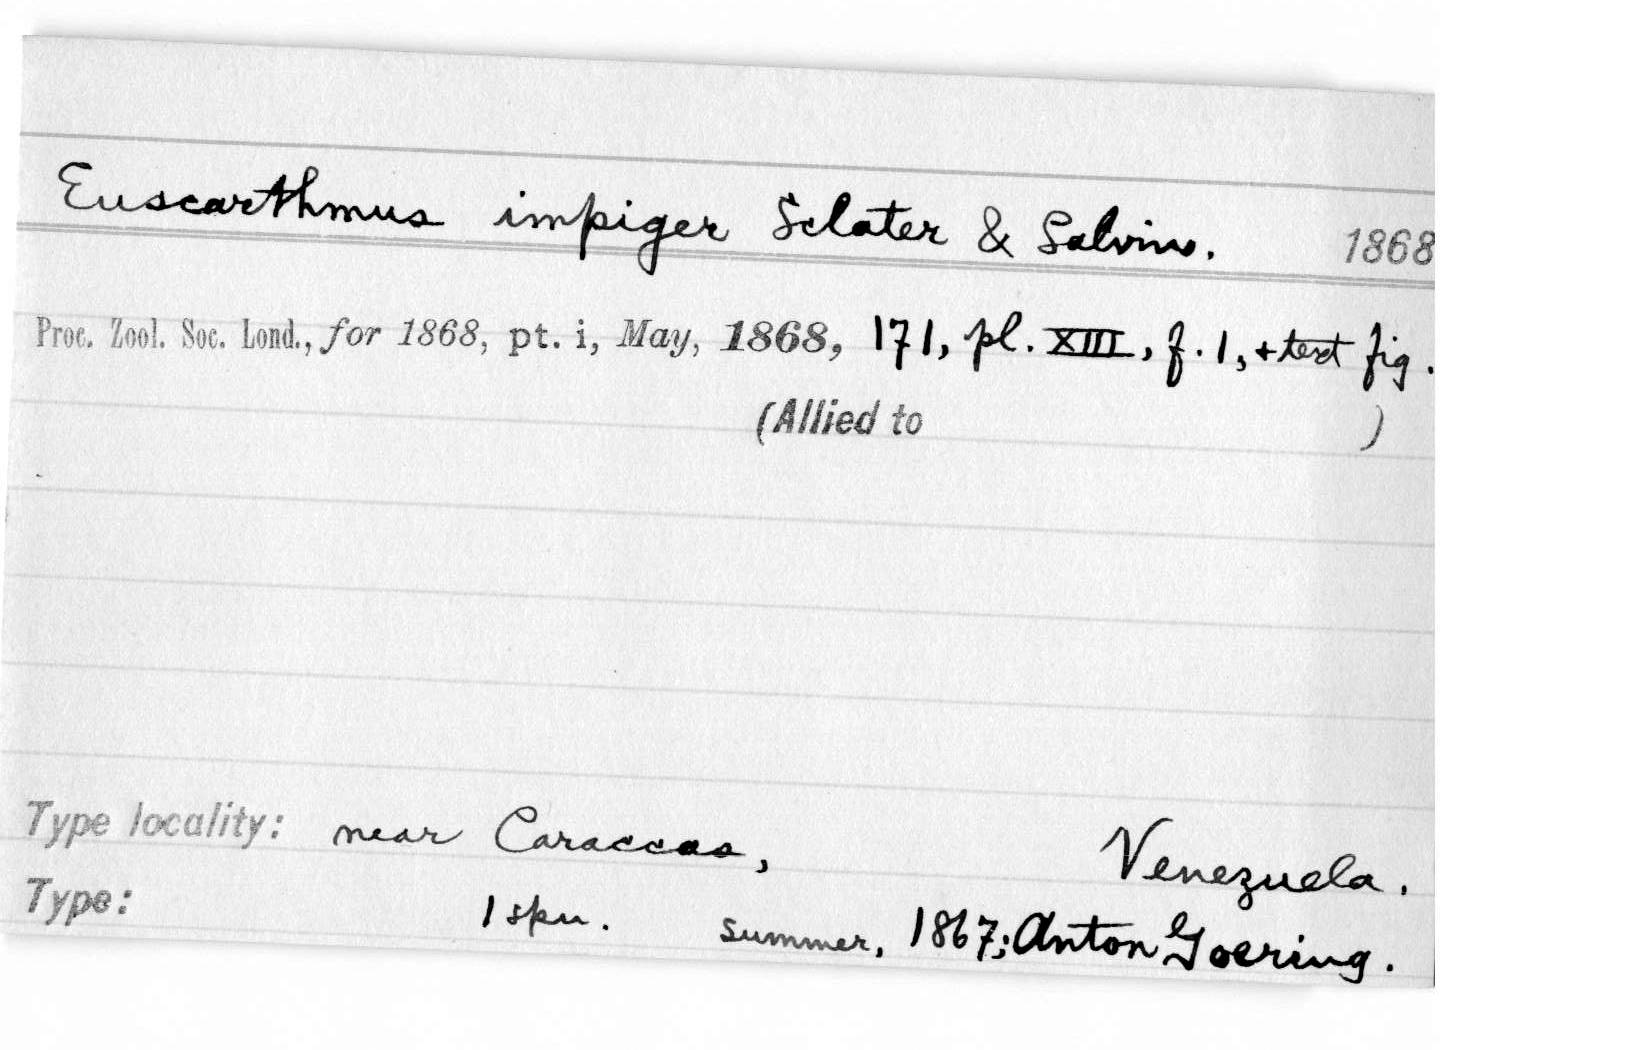 Euscarthmus impiger Sclater & Salvin. 1868
Proc. Zool. Soc. Lond., for 1868, pt. i, May, 1868, 171, pl. XIII, f. 1, + text fig.
(Allied to )
Type locality: near Caraccas, Venezuela.
Type: 1 spn. summer, 1867; Anton Goering.